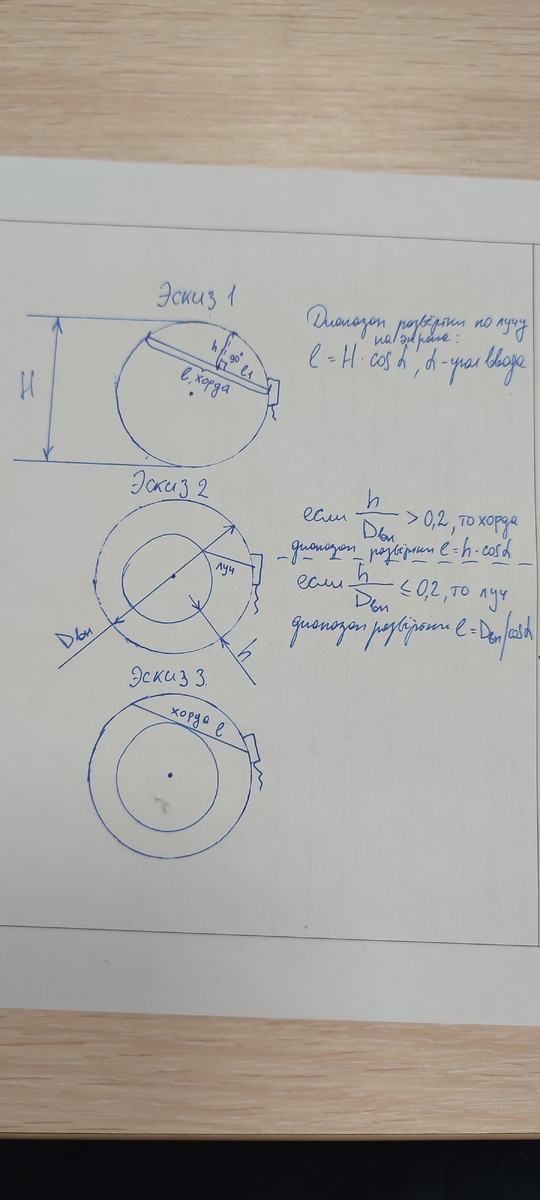 Эскиз 1
H
h
90°
l1
l, хорда
Диапазон развёртки по лучу
на экране:
l = H · cos α, α - угол ввода
Эскиз 2
луч
Dвп
h
если h/Dвп > 0,2, то хорда
диапазон развёртки l = h · cos α
если h/Dвп ≤ 0,2, то луч
диапазон развёртки l = Dвп/cos α
Эскиз 3.
хорда l